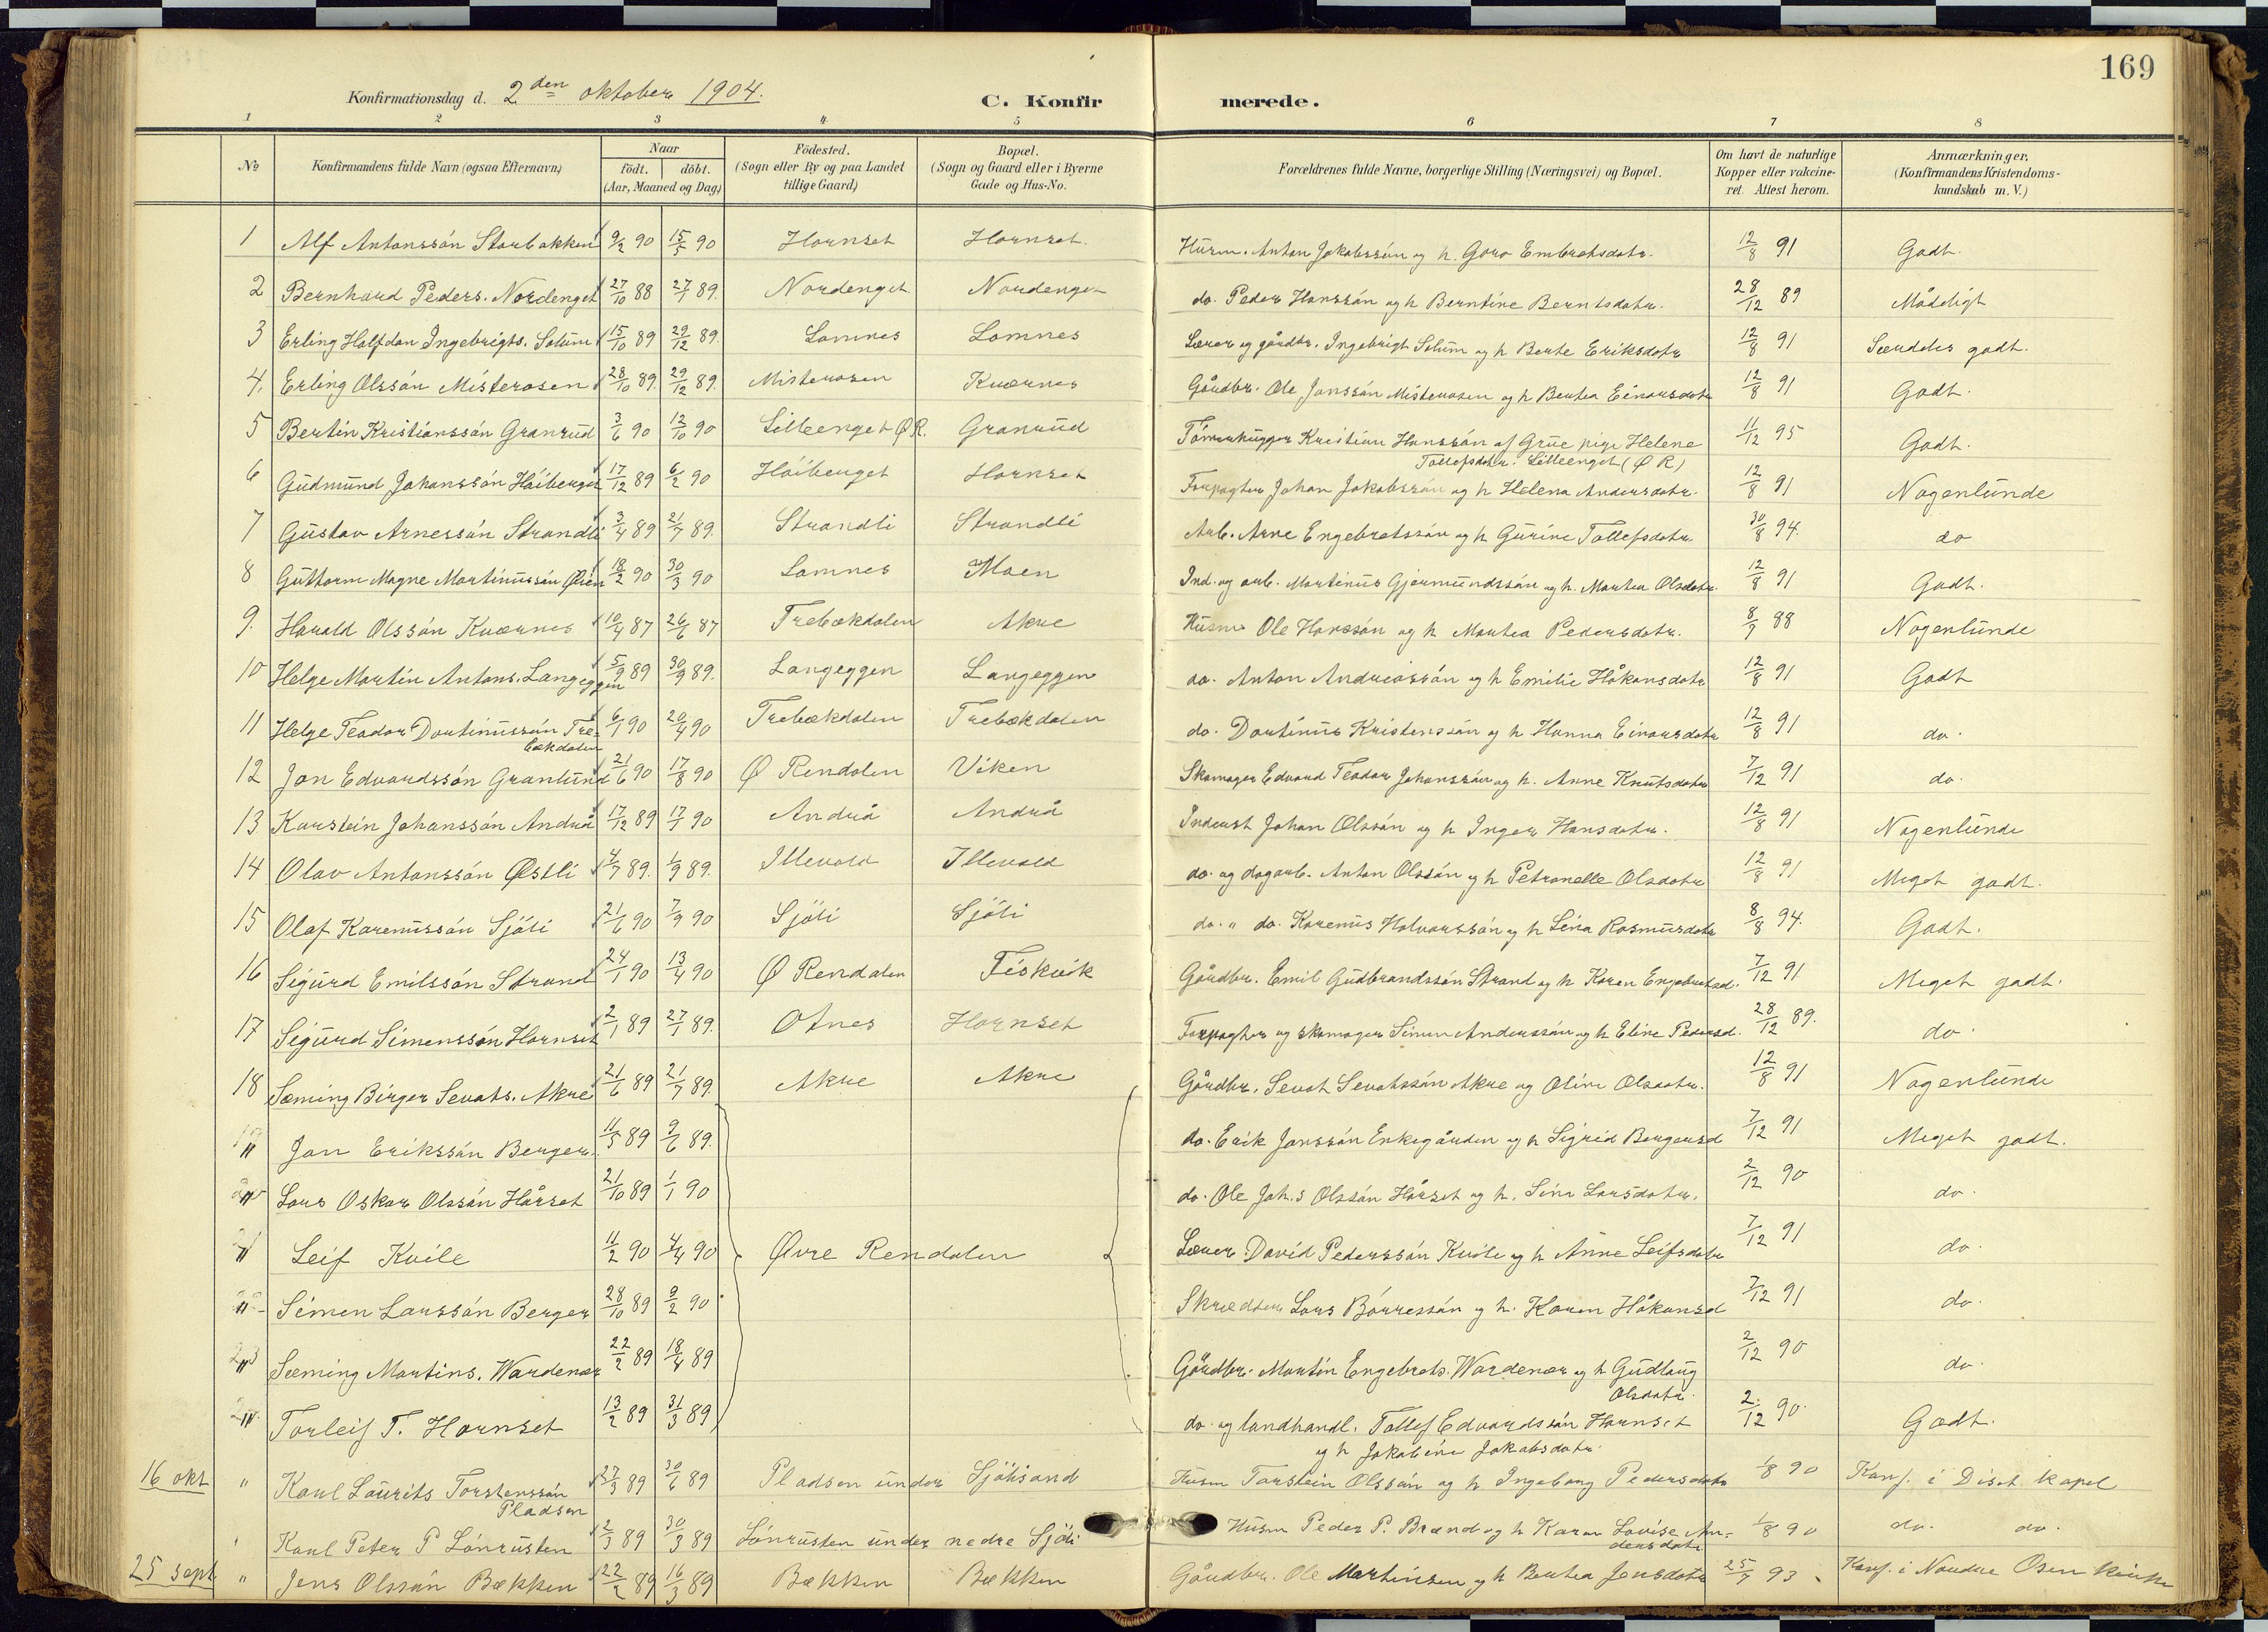 169
Konfirmationsdag d. 2den oktober 1904. C. Konfirmerede.
1 2 3 4 5 6 7 8
No Konfirmandens fulde Navn (ogsaa Efternavn) Naar födt. döbt. (Aar, Maaned og Dag) Födested. (Sogn eller By og paa Landet tillige Gaard) Bopæl. (Sogn og Gaard eller i Byerne Gade og Hus-No. Forældrenes fulde Navne, borgerlige Stilling (Næringsvei) og Bopæl. Om havt de naturlige Kopper eller vakcineret. Attest herom. Anmærkninger. (Konfirmandens Kristendomskundskab m. V.)
1 Alf Antonssön Storbakken 9/2 90 15/5 90 Hornset Hornset. Husm. Anton Jakobssön og h. Goro Embretsdotr. 12/8 91 Godt.
2 Bernhard Peders. Nordenget 27/10 88 27/1 89. Nordenget Nordenget do. Peder Hanssön og h Berntine Berntsdotr. 28/12 89 Mådeligt
3 Erling Halfdan Ingebrigts. Solum 15/10 89 29/12 89. Lomnes Lomnes Lærer og gårdbr. Ingebrigt Solum og h Berte Eriksdotr 12/8 91 Særdeles godt.
4. Erling Olssön Misterosen 28/10 89. 29/12 89. Misterosen Kværnes Gårdbr. Ole Jonssön Misterosen og h Bertea Einarsdotr 12/8 91 Godt.
5 Bertin Kristianssön Granrud 3/6 90 12/10 90 Lilleenget Ø R. Granrud Tömmerhugger Kristian Hanssön af Grue pige Helene Tollefsdotr. Lilleenget (Ø R) 11/12 95 Godt.
6 Gudmund Johanssön Höiberget 17/12 89 6/2 90 Höiberget Hornset Forpagter Johan Jakobssön og h Helena Andersdotr. 12/8 91 Nogenlunde
7 Gustav Arnessön Strandli 3/4 89 21/7 89. Strandli Strandli Arb. Arne Engebretssön og h Gurine Tollefsdotr. 30/8 94. do
8 Guttorm Magne Martinussön Øien 18/2 90 30/3 90 Lomnes Moen Ind. og arb. Martinus Gjermundssön og h. Martea Olsdotr. 12/8 91 Godt.
9. Harald Olssön Kværnes 10/4 87 26/6 87 Trebækdalen Akre Husm. Ole Hanssön og h Martea Pedersdotr. 8/9 88 Nogenlunde
10 Helge Martin Antons. Langeggen 5/9 89 30/9 89. Langeggen Langeggen do. Anton Andreassön og h Emilie Håkonsdotr 12/8 91 Godt
11 Helge Teodor Dortinussön Trebækdalen 6/1 90 20/4 90 Trebækdalen Trebækdalen do. Dortinus Kristenssön og h Hanna Einarsdotr 12/8 91 do.
12 Jon Edvardssön Granlund 21/6 90 17/8 90 Ø Rendalen Viken Skomager Edvard Teodor Johanssön og h. Anne Knutsdotr 7/12 91 do.
13 Karstein Johanssön Andrå 17/12 89 17/1 90 Andrå Andrå Inderst Johan Olssön og h Inger Hansdotr. 12/8 91 Nogenlunde
14 Olav Antonssön Østli 4/7 89. 1/9 89. Illevold Illevold do. og dagarb. Anton Olssön og h Petronelle Olsdotr 12/8 91 Meget godt.
15 Olaf Karenussön Sjöli 21/6 90 7/9 90 Sjöli Sjöli do. " do. Karenus Halvorssön og h Lina Rasmusdotr 8/8 94. Godt.
16 Sigurd Emilssön Strand 24/1 90 13/4 90 Ø Rendalen Fiskvik Gårdbr. Emil Gudbrandssön Strand og h Karen Engebretsd. 7/12 91 Meget godt.
17 Sigurd Simenssön Hornset 2/1 89 27/1 89. Otnes Hornset Forpagter og skomager Simen Anderssön og h Eline Pedersd. 28/12 89. do.
18 Sæming Birger Sevats. Akre 21/6 89 21/7 89. Akre Akre Gårdbr. Sevat Sevatssön Akre og Oline Olsdotr. 12/8 91 Nogenlunde
" Jon Erikssön Berger 11/5 89 9/6 89. do. Erik Jonssön Enkegården og h Sigrid Bergersd 7/12 91 Meget godt.
" Lars Oskar Olssön Hårset 21/10 89 1/1 90 do. Ole Joh.s Olssön Hårset og h. Lina Larsdotr. 2/12 90 do.
" Leif Kvile 11/2 90 4/4 90 Øvre Rendalen Lærer David Pederssön Kvile og h Anne Leifsdotr 7/12 91 do.
" Simen Larssön Berger 28/10 89 9/2 90 Skrædder Lars Börressön og h. Karen Håkonsd 7/12 91 do.
" Sæming Martins. Wardenær 22/2 89 18/4 89 Gårdbr. Martin Engebrets. Wardenær og h Gudlaug Olsdotr. 2/12 90 do.
" Torleif T. Hornset 13/2 89 31/3 89 do. og landhandl. Tollef Edvardssön Hornset og h Jakobine Jakobsdotr. 2/12 90. Godt.
16 okt " Karl Laurits Torstenssön Pladsen 27/3 89 30/6 89 Pladsen under Sjölisand Husm Torstein Olssön og h Ingeborg Pedersdotr 1/8 90 Konf. i Diset kapel
" Karl Peter P Lönrusten 2/3 89 30/3 89 Lönrusten under nedre Sjöli Husm Peder P. Brænd og h Karen Lovise Andersdotr 1/8 90 do. do.
25 sept " Jens Olssön Bækken 22/2 89 16/3 89 Bækken Bækken Gårdbr. Ole Martinsen og h Bertea Jensdotr 25/7 93 Konf. i Nordre Osen kirke